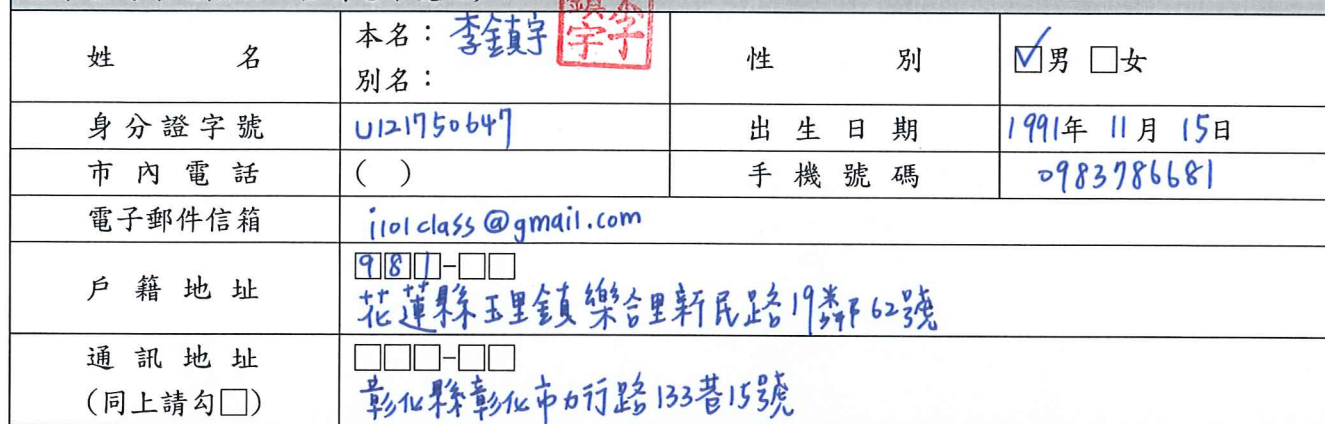 姓名 本名：李鎮宇 性別 ☑男 □女
別名：
身分證字號 U121750647 出生日期 1991年 11月 15日
市內電話 ( ) 手機號碼 0983786681
電子郵件信箱 i101class@gmail.com
戶籍地址 981-□□
花蓮縣玉里鎮樂合里新民路19鄰62號
通訊地址 □□□-□□
(同上請勾□) 彰化縣彰化市力行路133巷15號